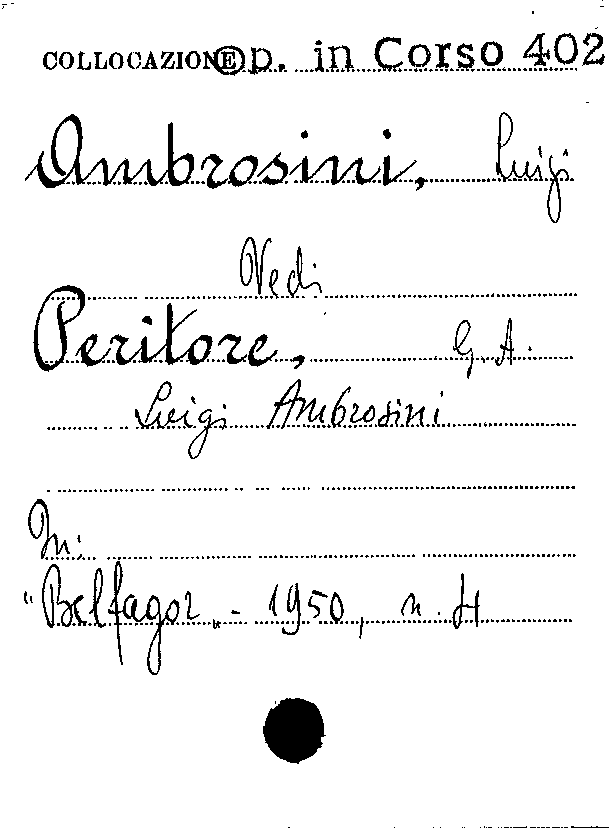 COLLOCAZIONE Op. in Corso 402
Ambrosini, Luigi
Vedi
Peritore, G. A.
Luigi Ambrosini
In:
"Belfagor„ - 1950, n. 4